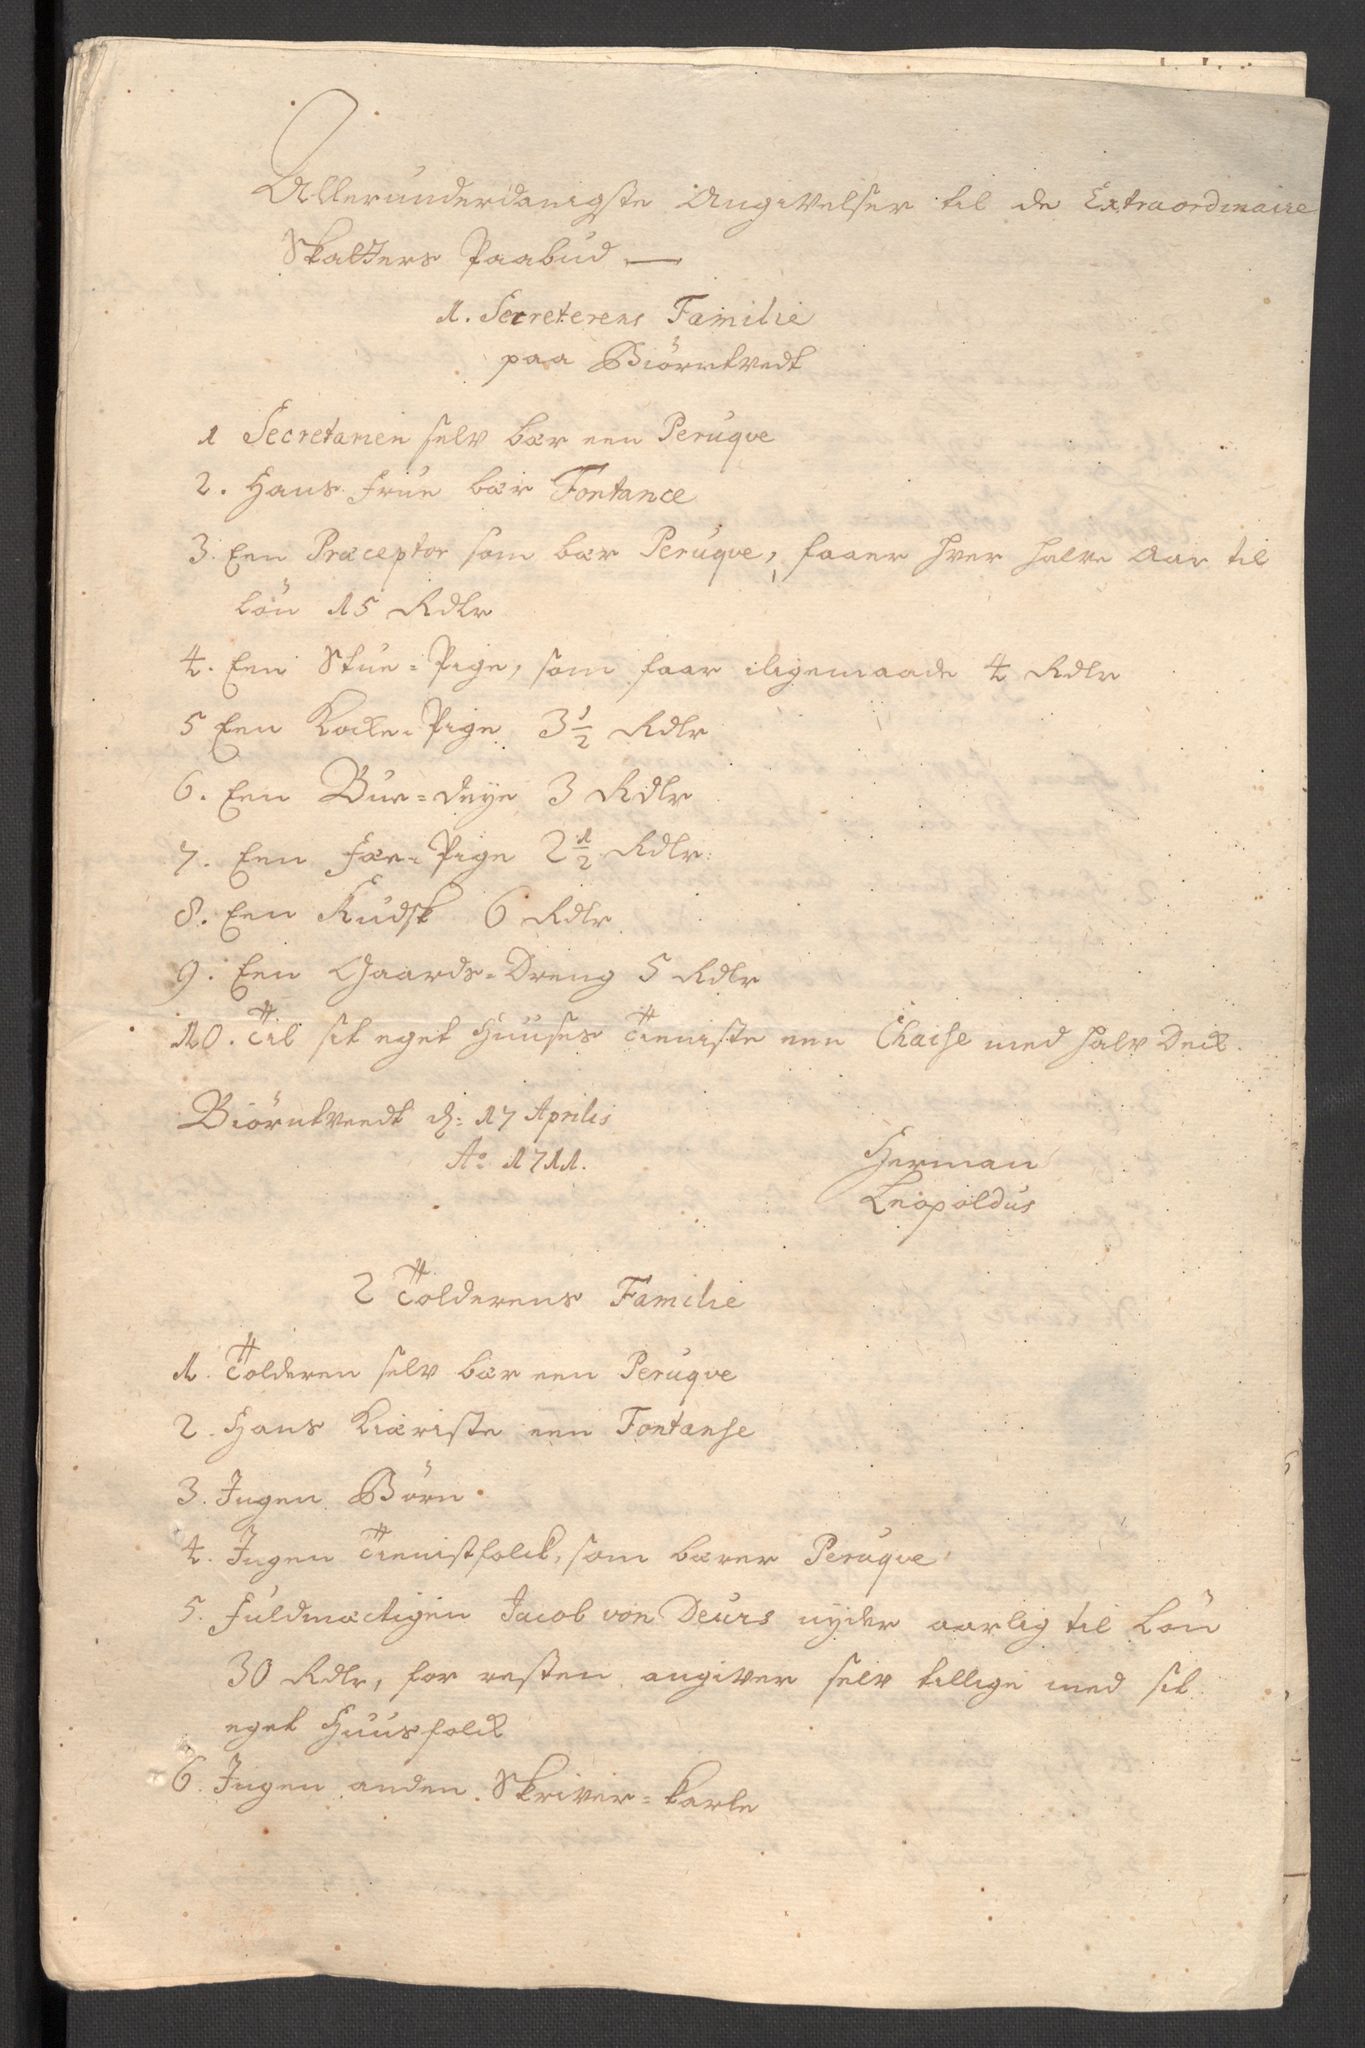 Allerunderdanigste Angivelser til de Extraordinaire
Skatters Paabud —
1. Secreterens Familie
paa Biörntvedt
1 Secretaren selv bær een Peruqve
2. Hans Frue bær Fontance
3. Een Præceptor som bær Peruqve, faaer hver halve Aar til
Lön 15 Rdlr
4. Een Stue-Pige, som faar iligemaade 4 Rdlr
5 Een Kocke-Pige 3 1/2 Rdlr
6. Een Bue-Deye 3 Rdlr
7. Een Fæe-Pige 2 1/2 Rdlr
8. Een Kudsk 6 Rdlr
9. Een Gaards-Dreng 5 Rdlr
10. Til sit eget Huuses Tieniste een Chaise med halv Deck.
Biörntveedt d: 17 Aprilis
Ao 1711.
Herman
Leopoldus
2 Tolderens Familie
1. Tolderen selv bær een Peruqve
2. Hans Kiæriste een Fontanse
3. Ingen Börn
4. Ingen Tienistfolck, som bærer Peruqve
5. Fuldmæctigen Jacob von Deurs nyder aarlig til Lön
30 Rdlr, for resten angiver selv tillige med sit
eget Huusfolck
6. Ingen anden Skriver-karle